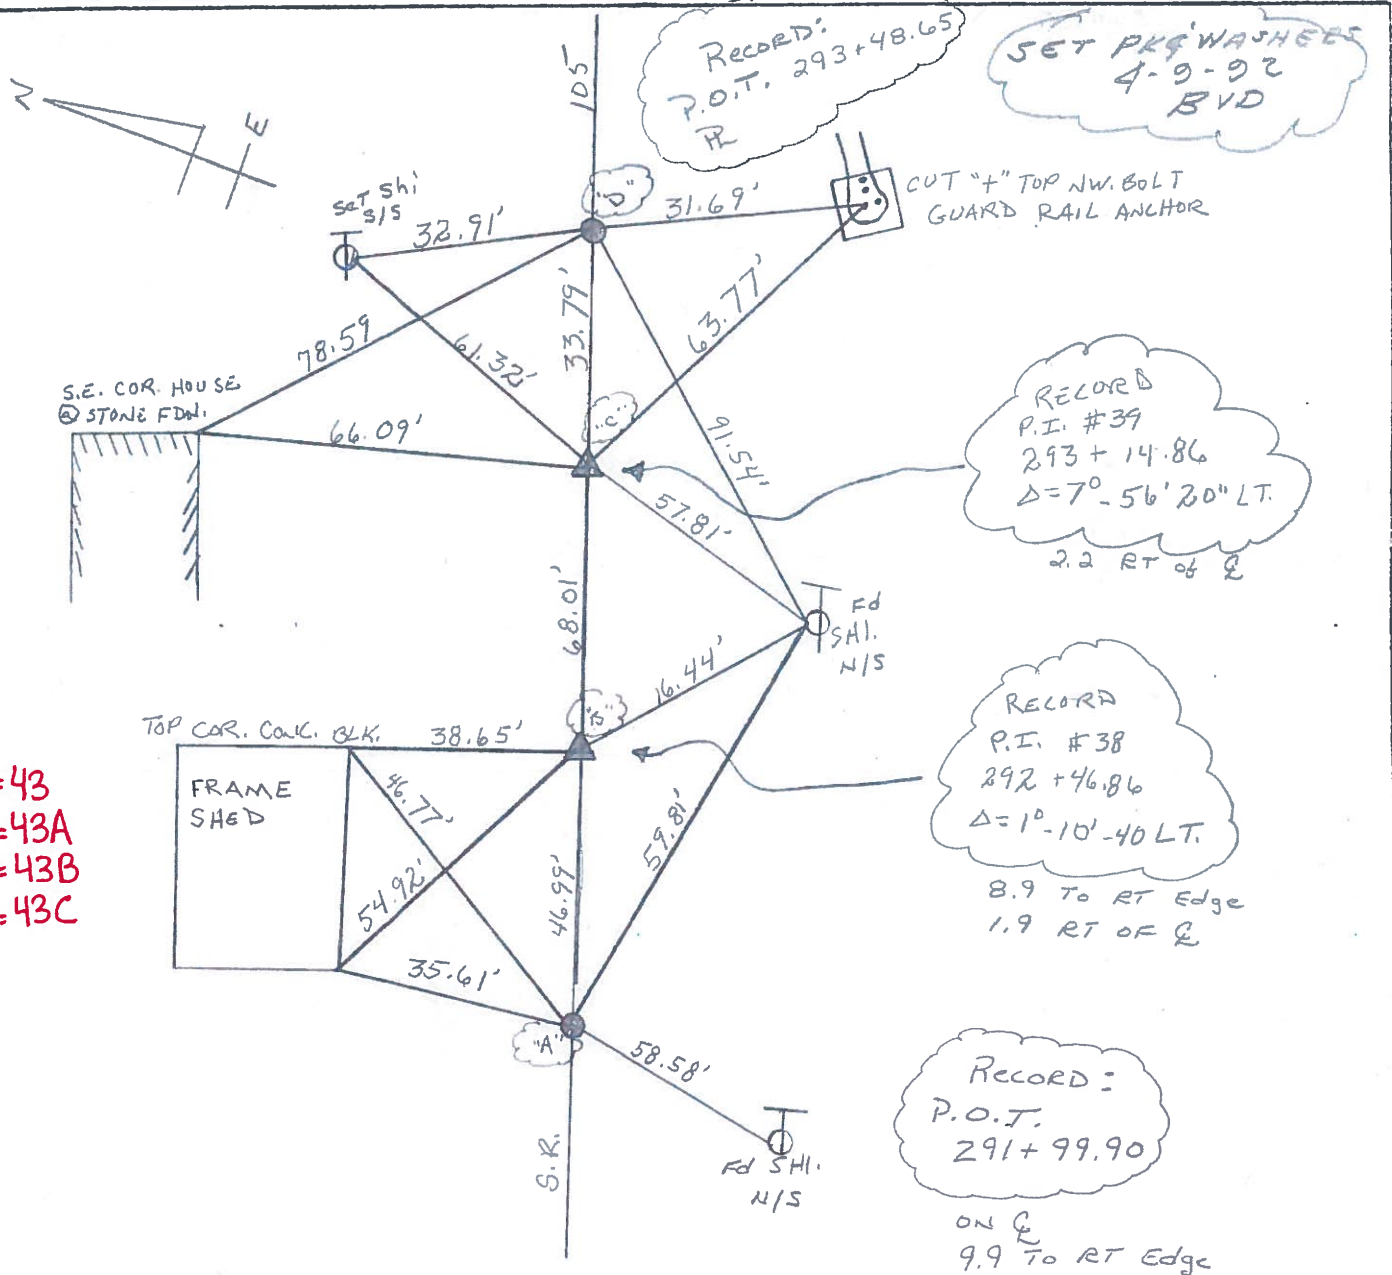 RECORD:
P.O.T. 293+48.65
PL
SET PK & WASHEES
4-9-92
BVD
N
E
105
"D"
SET Shi
S/S
32.91'
31.69'
CUT "+" TOP NW. BOLT
GUARD RAIL ANCHOR
33.79'
63.77'
78.59
61.32'
S.E. COR. HOUSE
@ STONE FDN.
66.09'
"C"
91.54'
57.81'
RECORD
P.I. #39
293 + 14.86
Δ=7°-56'20" LT.
2.2 RT of ℄
68.01'
Fd
SHI.
N/S
16.44'
"B"
TOP COR. CONC. BLK.
38.65'
FRAME
SHED
46.77'
54.92'
46.99'
59.81'
RECORD
P.I. #38
292 +46.86
Δ=1°-10'-40 LT.
8.9 To RT Edge
1.9 RT OF ℄
=43
=43A
=43B
=43C
35.61'
"A"
58.58'
S.R.
Fd SHI.
N/S
RECORD:
P.O.T.
291+99.90
ON ℄
9.9 To RT Edge